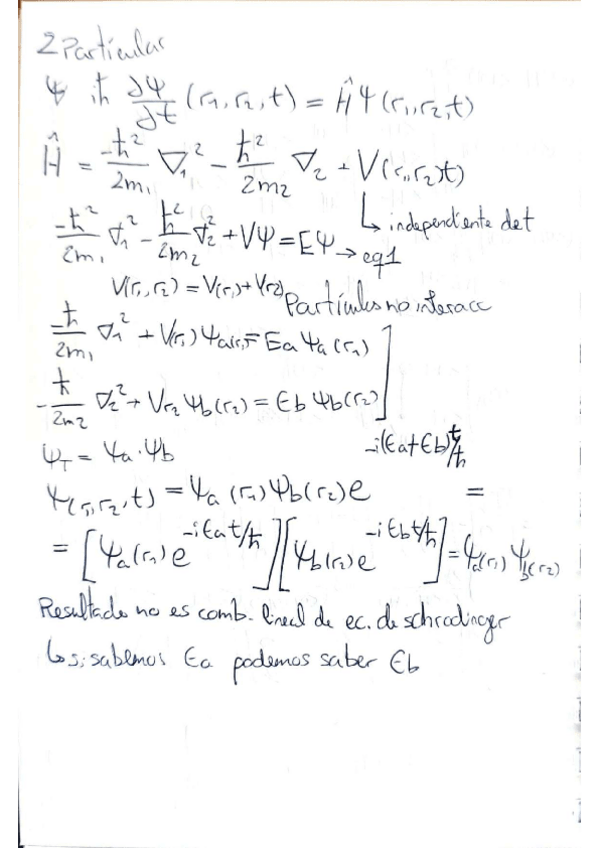 2 Particular
ψ iħ ∂Ψ/∂t (r₁,r₂,t) = Ĥ Ψ(r₁,r₂,t)
Ĥ = -ħ²/2m₁ ∇₁² - ħ²/2m₂ ∇₂ + V(r₁,r₂,t)
↳ independiente de t
-ħ²/2m₁ ∇₁² - ħ²/2m₂ ∇₂² + VΨ = EΨ → eq1
V(r₁,r₂) = V(r₁) + V(r₂) Partículas no interacc
-ħ/2m₁ ∇₁² + V(r₁) Ψa(r₁) = Ea Ψa(r₁)
-ħ/2m₂ ∇₂² + Vr₂ Ψb(r₂) = Eb Ψb(r₂)]
Ψ_T = Ψa · Ψb
Ψ(r₁,r₂,t) = Ψa(r₁) Ψb(r₂) e^-i(Ea+Eb)t/ħ =
= [Ψa(r₁) e^-iEat/ħ][Ψb(r₂) e^-iEbt/ħ] = Ψa(r₁) Ψb(r₂)
Resultado no es comb. lineal de ec. de schrodinger
↳ si sabemos Ea podemos saber Eb